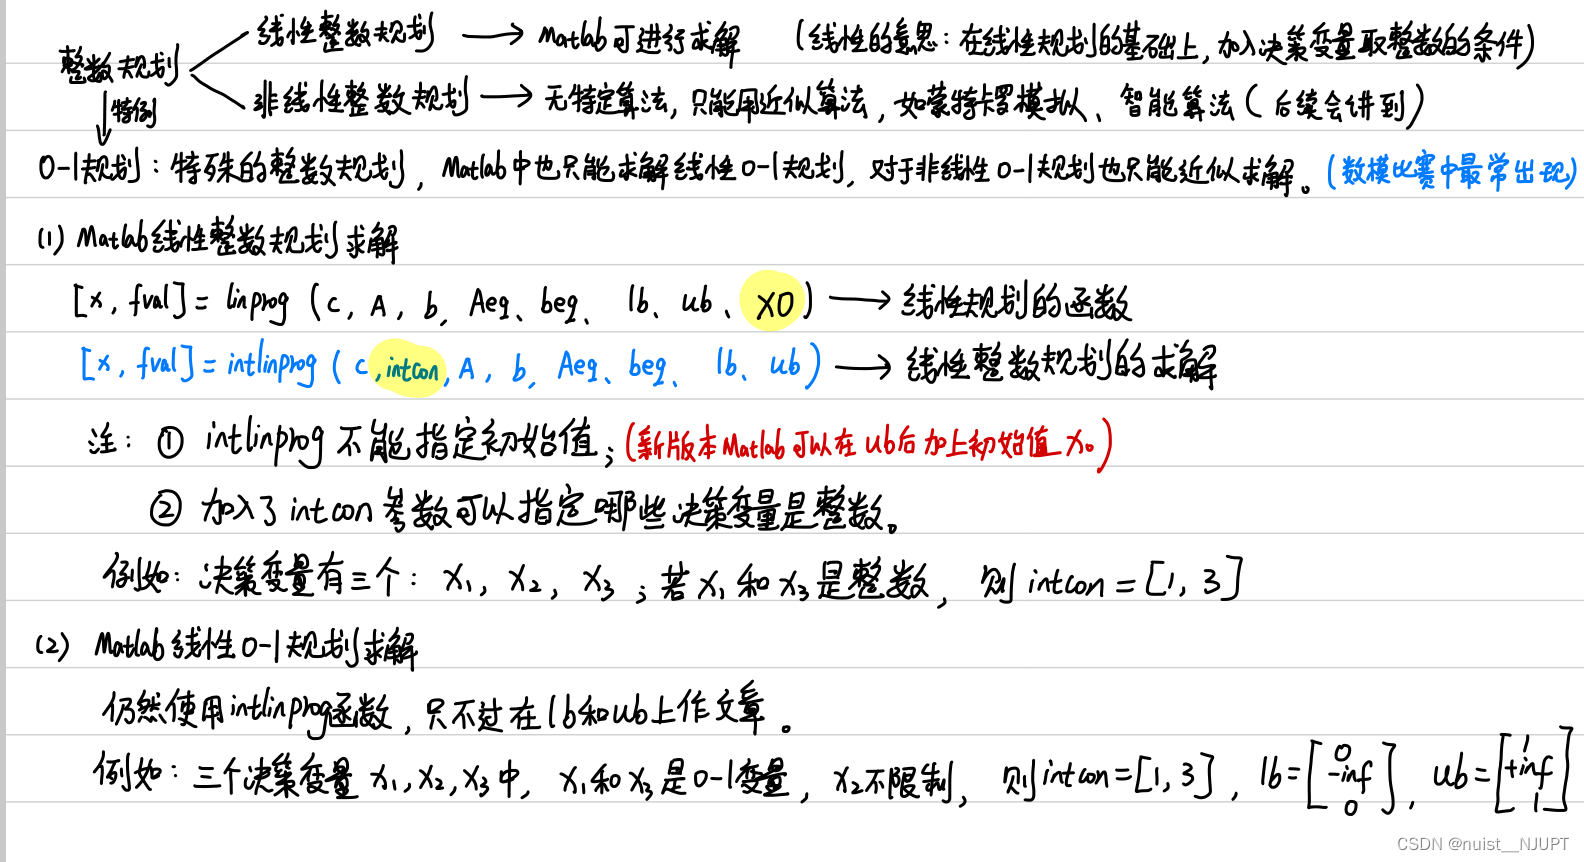 线性整数规划 → Matlab可进行求解 (线性的意思:在线性规划的基础上,加入决策变量取整数的条件)
整数规划
非线性整数规划 → 无特定算法,只能用近似算法,如蒙特卡罗模拟、智能算法(后续会讲到)
↓特例
0-1规划:特殊的整数规划,Matlab中也只能求解线性0-1规划,对于非线性0-1规划也只能近似求解。(数模比赛中最常出现)
(1) Matlab线性整数规划求解
[x, fval] = linprog (c, A, b, Aeq、beq、 lb、ub、X0) → 线性规划的函数
[x, fval] = intlinprog (c, intcon, A, b, Aeq、beq、 lb、ub) → 线性整数规划的求解
注: ① intlinprog 不能指定初始值;(新版本Matlab可以在ub后加上初始值 x₀)
② 加入了intcon参数可以指定哪些决策变量是整数。
例如:决策变量有三个: x₁, x₂, x₃ ;若x₁和x₃是整数, 则intcon = [1, 3]
(2) Matlab线性0-1规划求解
仍然使用intlinprog函数,只不过在lb和ub上作文章。
例如:三个决策变量 x₁, x₂, x₃中, x₁和x₃是0-1变量, x₂不限制, 则intcon = [1, 3], lb = [0 -inf 0], ub = [1 +inf 1]
CSDN @nuist__NJUPT